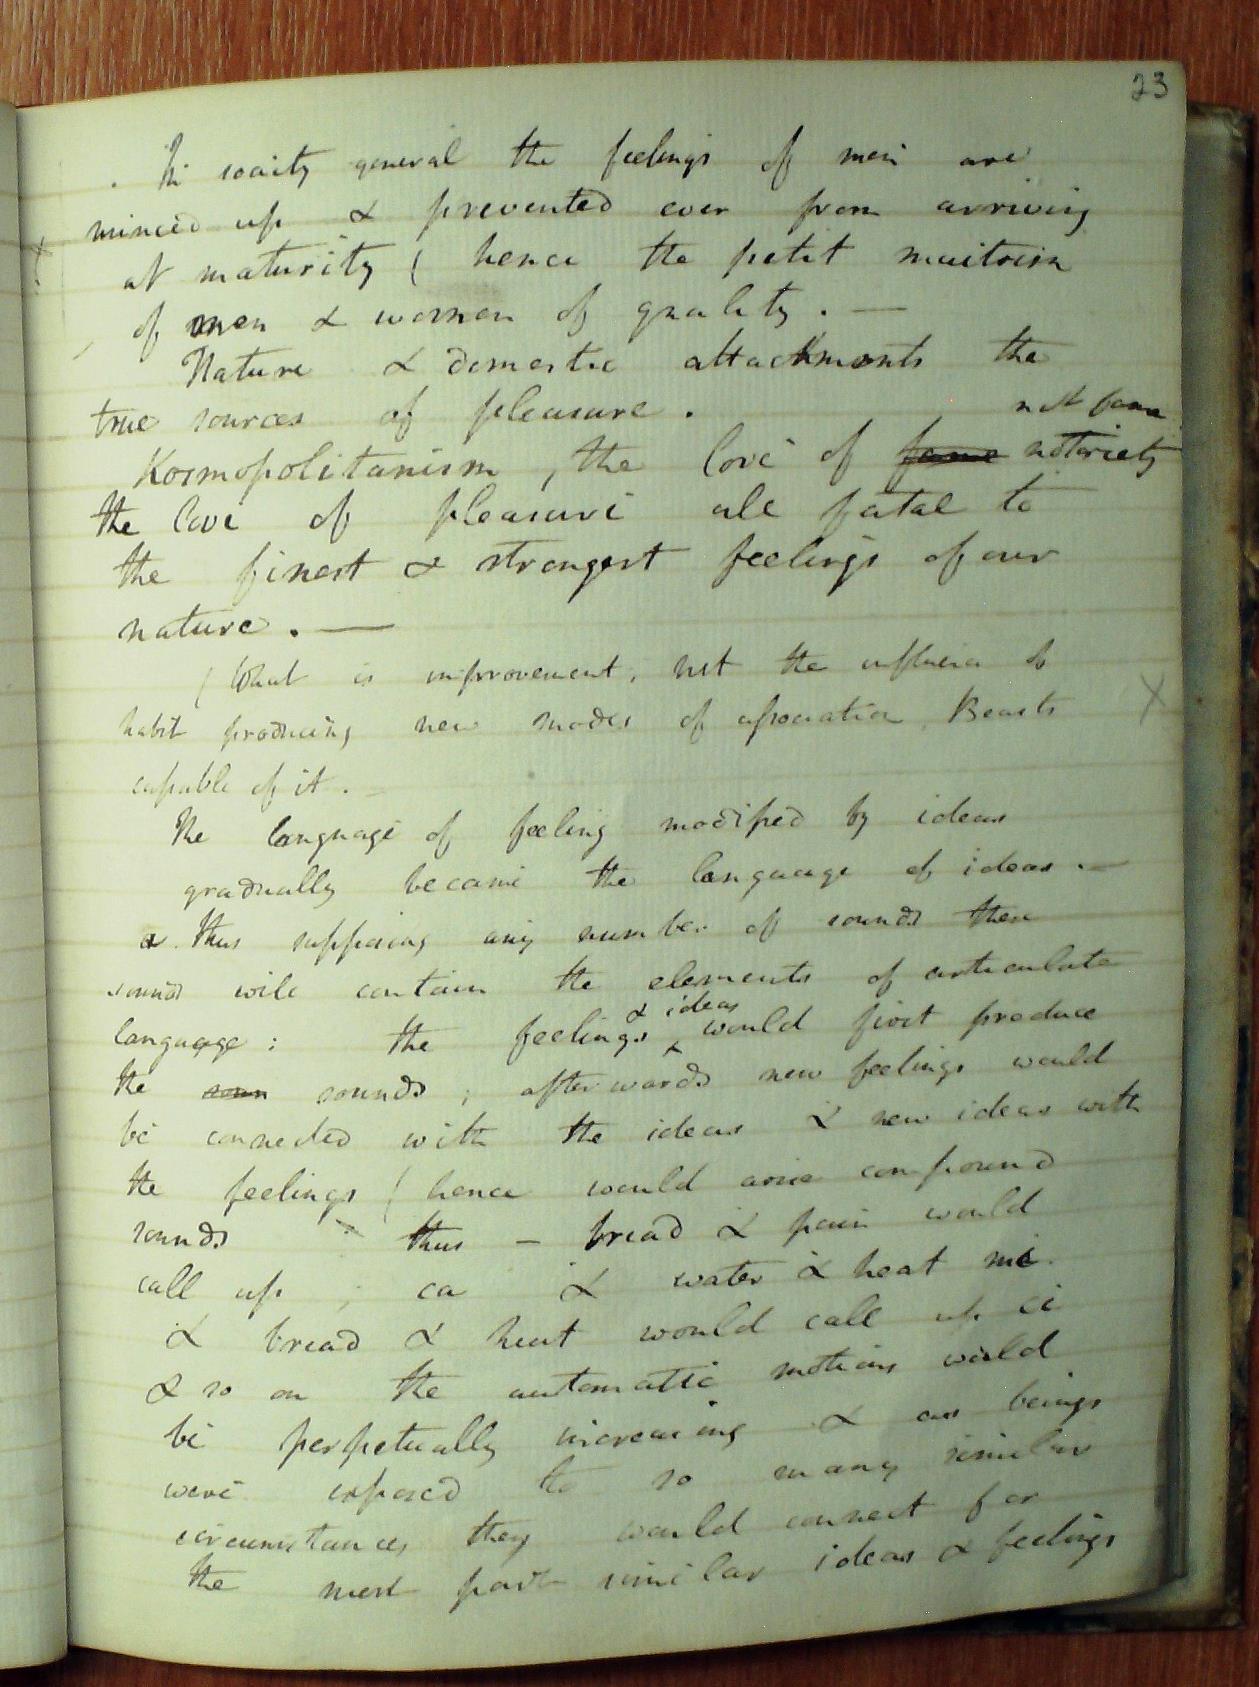 23
. In society general the feelings of men are
minced up & prevented ever from arriving
at maturity ( hence the petit maitrism
of men & women of quality . —
Nature & domestic attachments the
true sources of pleasure .
not fame
Kosmopolitanism , the love of fame notoriety
the love of pleasure all fatal to
the finest & strongest feelings of our
nature . —
( What is improvement, not the influence of
habit producing new modes of association . Beasts
capable of it . —
The language of feeling modified by ideas
gradually became the language of ideas . —
thus supposing any number of sounds these
sounds will contain the elements of articulate
& ideas
language : the feelings ^ would first produce
the soun sounds ; afterwards new feelings would
be connected with the ideas & new ideas with
the feelings ( hence would arise compound
sounds thus — bread & pain would
call up ca & water & heat mi
& bread & heat would call up ci
& so on the automatic motions would
be perpetually increasing & as beings
were exposed to so many similar
circumstances they would connect for
the most part similar ideas & feelings